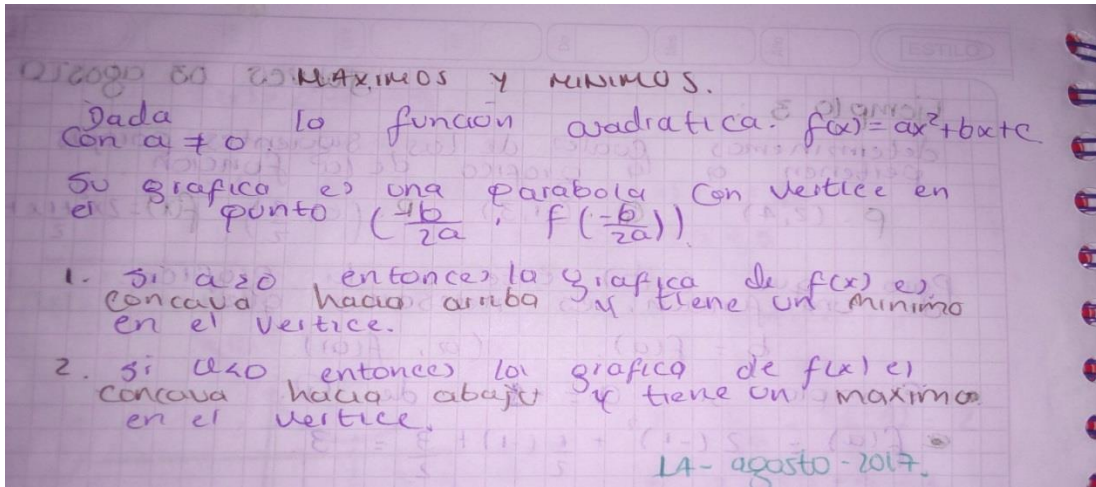 MAXIMOS Y MINIMOS.
Dada la función cuadratica. f(x) = ax²+bx+c
Con a ≠ 0.
Su grafica es una parabola con vertice en
el punto (-b/2a, f(-b/2a))
1. Si a>0 entonces la grafica de f(x) es
concava hacia arriba y tiene un minimo
en el vertice.
2. Si a<0 entonces la grafica de f(x) es
concava hacia abajo y tiene un maximo
en el vertice.
14-agosto-2017.